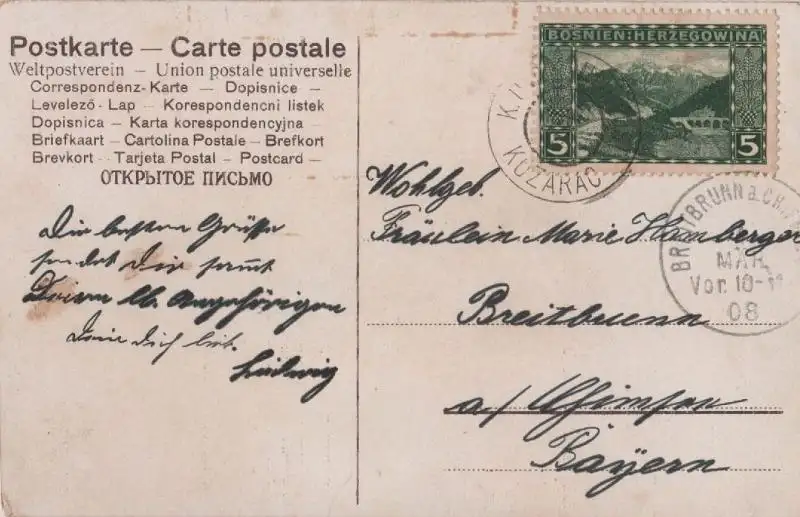 Postkarte — Carte postale
Weltpostverein — Union postale universelle
Correspondenz-Karte — Dopisnice —
Levelező-Lap — Korespondencni listek
Dopisnica — Karta korespondencyjna —
Briefkaart — Cartolina Postale — Brefkort
Brevkort — Tarjeta Postal — Postcard —
ОТКРЫТОЕ ПИСЬМО
Die besten Grüße
sendet Dir samt
Deinen lb. Angehörigen
Dein Dich lieb.
Ludwig
BOSNIEN:HERZEGOWINA
5 5
KOZARAC
Wohlgeb.
Fräulein Marie Hamberger
BREITBRUNN a. CH
MÄR
Vor. 10-11
08
Breitbrunn
a/ Chimsee
Bayern